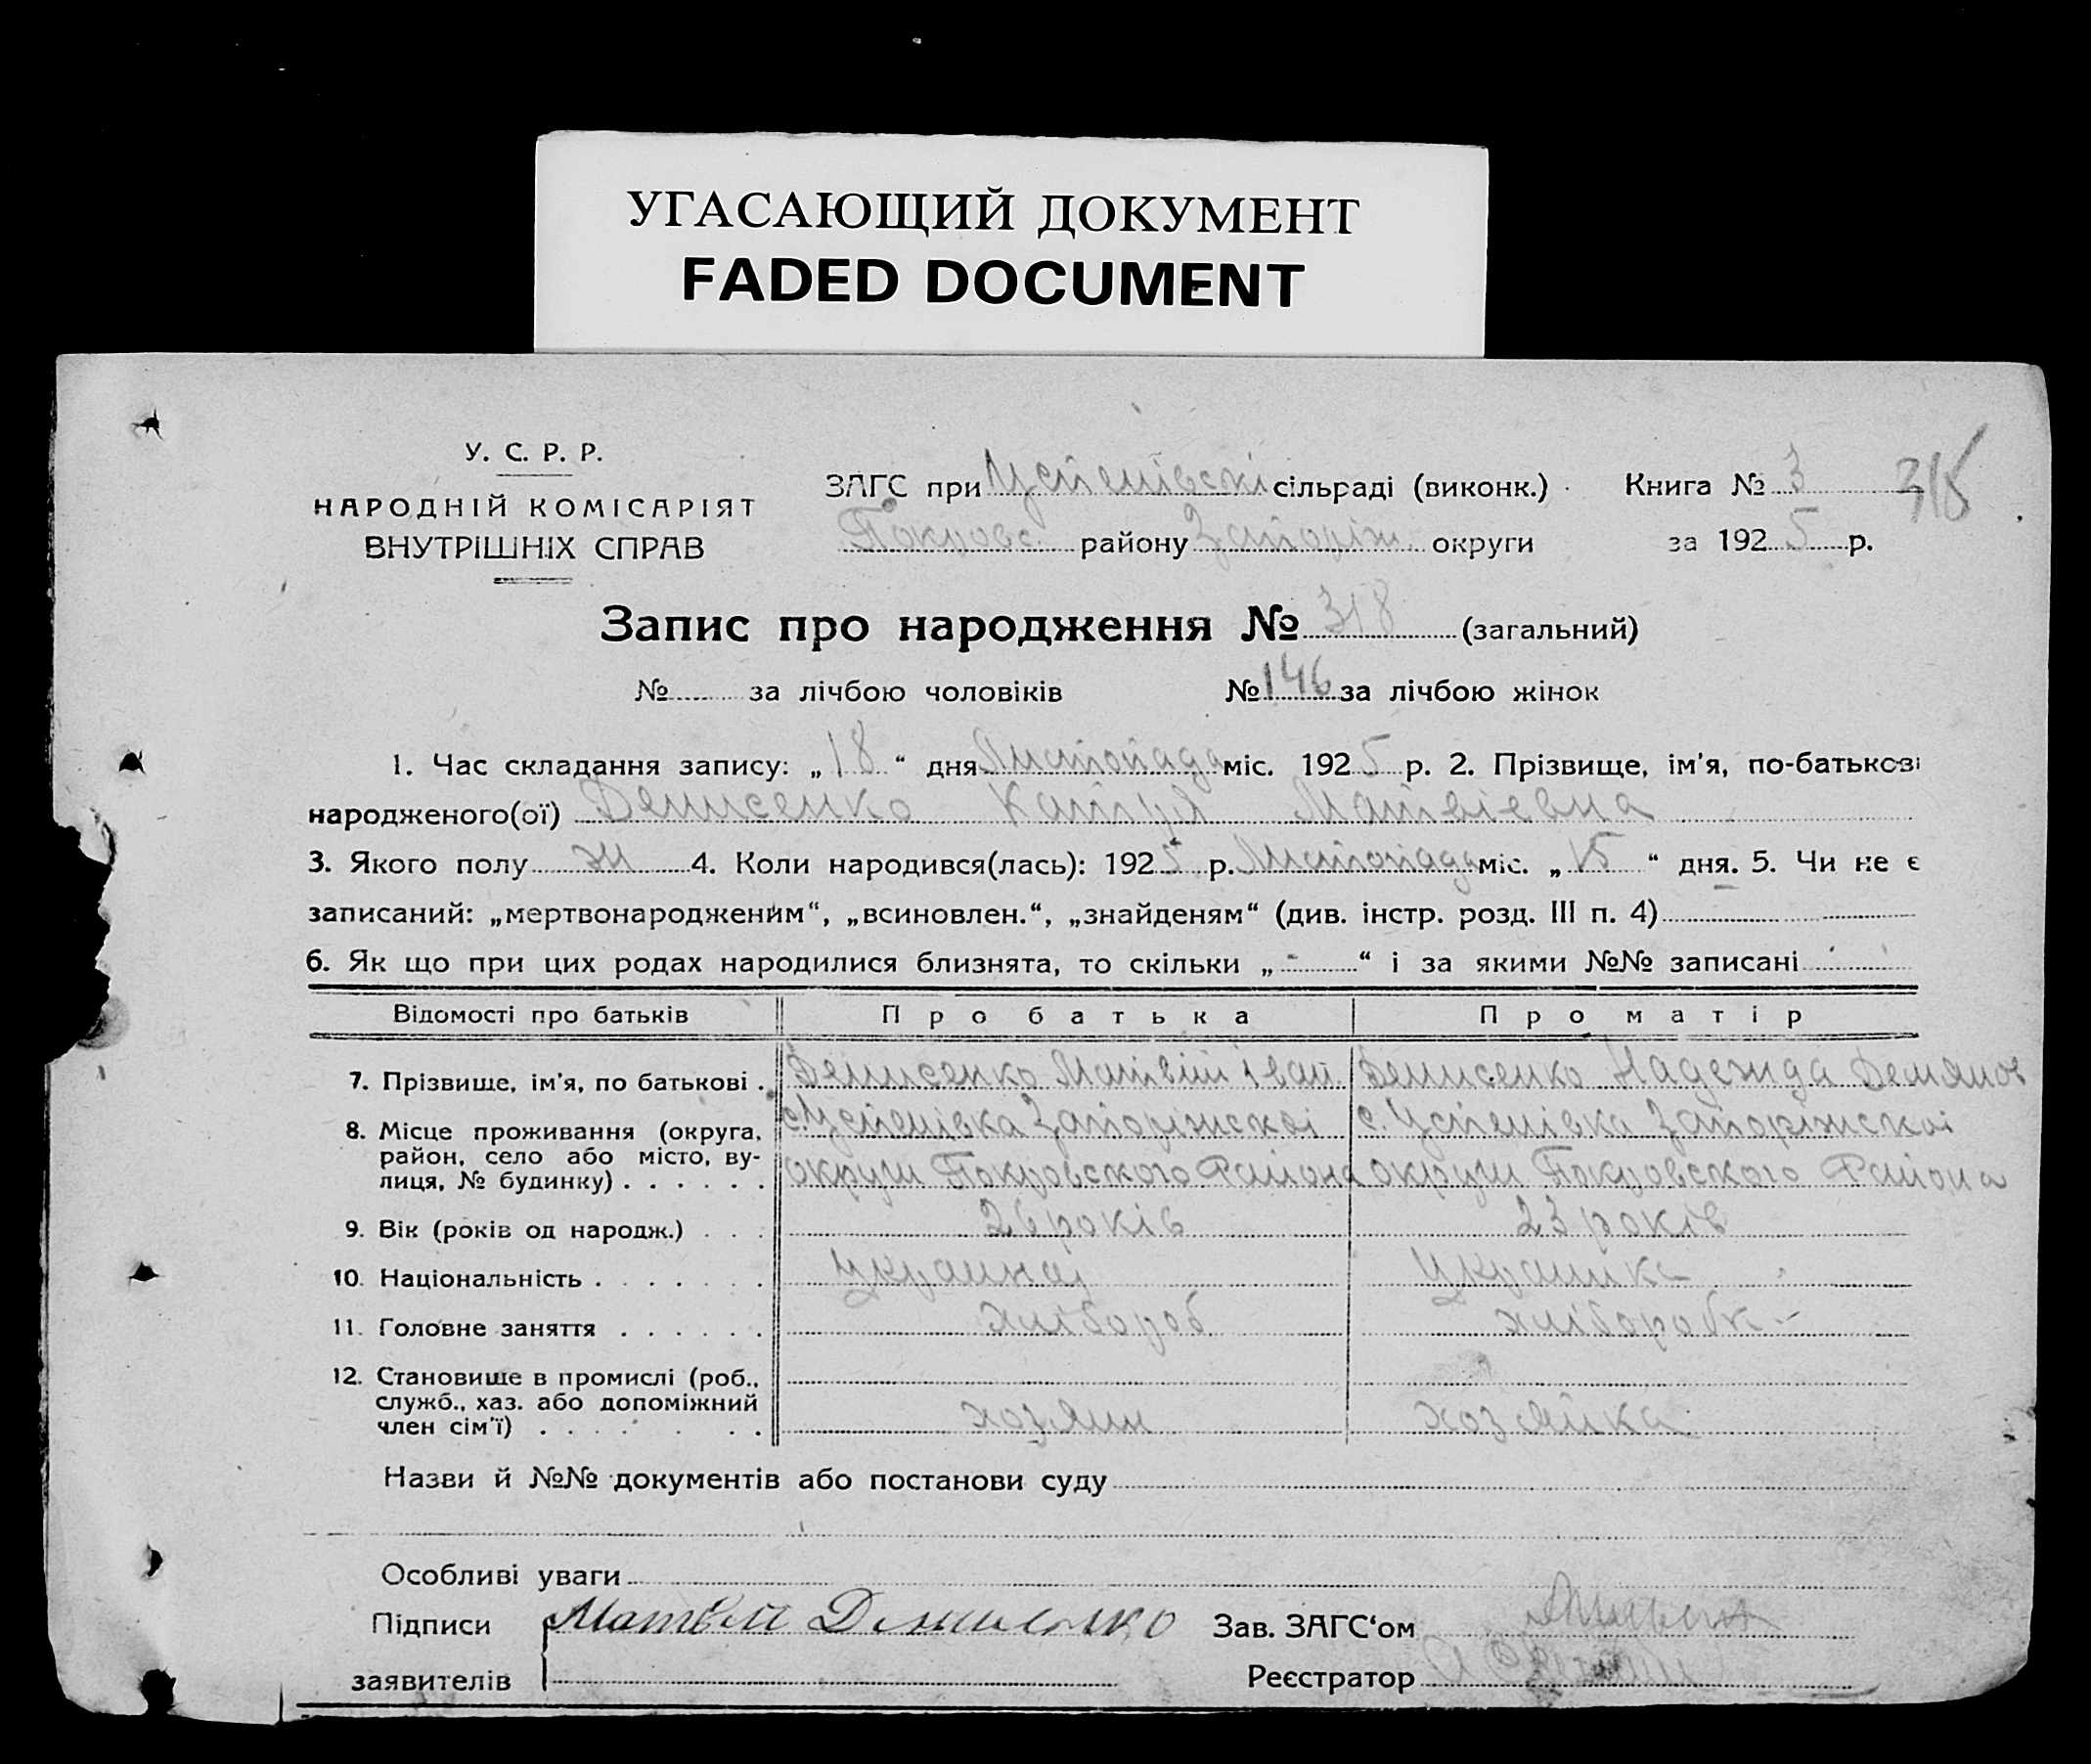 УГАСАЮЩИЙ ДОКУМЕНТ
FADED DOCUMENT
У. С. Р. Р.
НАРОДНІЙ КОМІСАРІЯТ
ВНУТРІШНІХ СПРАВ
ЗАГС при Успенівскі сільраді (виконк.) Книга № 3
Покровс. району Запоріж. округи за 1925 р.
Запис про народження № 318 (загальний)
№ за лічбою чоловіків № 146 за лічбою жінок
1. Час складання запису: „18“ дня Листопада міс. 1925 р. 2. Прізвище, ім'я, по-батькові
народженого(ої) Денисенко Катря Матвіевна
3. Якого полу ж 4. Коли народився(лась): 1925 р. Листопада міс. „15“ дня. 5. Чи не є
записаний: „мертвонародженим“, „всиновлен.“, „знайденям“ (див. інстр. розд. III п. 4)
6. Як що при цих родах народилися близнята, то скільки „-“ і за якими №№ записані
Відомості про батьків Про батька Про матір
7. Прізвище, ім'я, по батькові . Денисенко Матвій Іван. Денисенко Надежда Демянов
8. Місце проживання (округа, с. Успенівка Запоріжскоі с. Успенівка Запоріжскоі
район, село або місто, ву-
лиця, № будинку) . . . . . . округи Покровского Района округи Покровского Района
9. Вік (років од народж.) . . . 26 років 23 років
10. Національність . . . . . . . 
11. Головне заняття . . . . . . хлібороб хліборобк-
12. Становище в промислі (роб.,
служб., хаз. або допоміжний
член сім'ї) . . . . . . . хозяин хозяйка
Назви й №№ документів або постанови суду
Особливі уваги
Підписи Матвій Денисенко Зав. ЗАГС'ом
заявителів Реєстратор